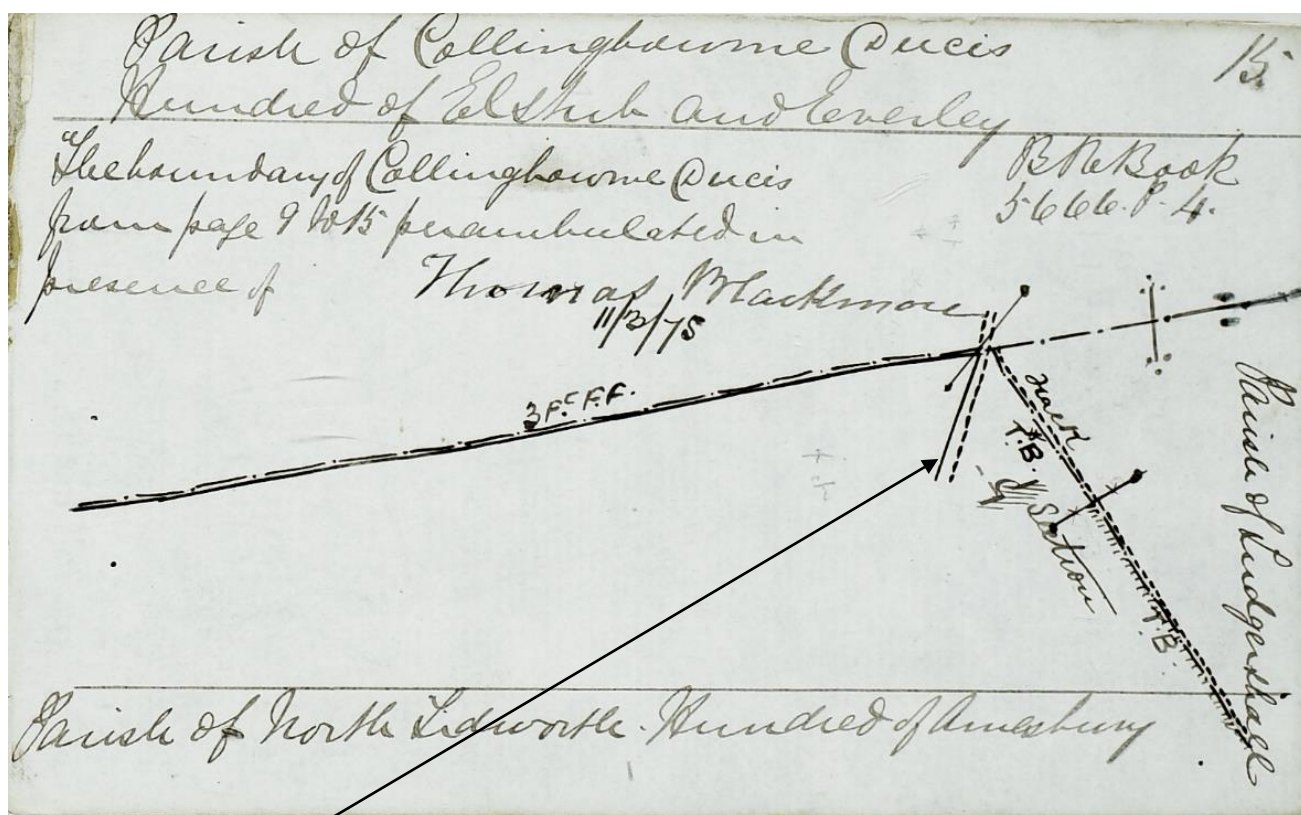 Parish of Collingbourne Ducis
15
Hundred of Elstub and Everley
The boundary of Collingbourne Ducis
from page 9 to 15 perambulated in
presence of Thomas Blackmore
11/3/75
B R Book
5666. P. 4.
3 F.c F.F.
Track
T.B.
Section
T.B.
Parish of Ludgershall
Parish of North Tidworth. Hundred of Amesbury